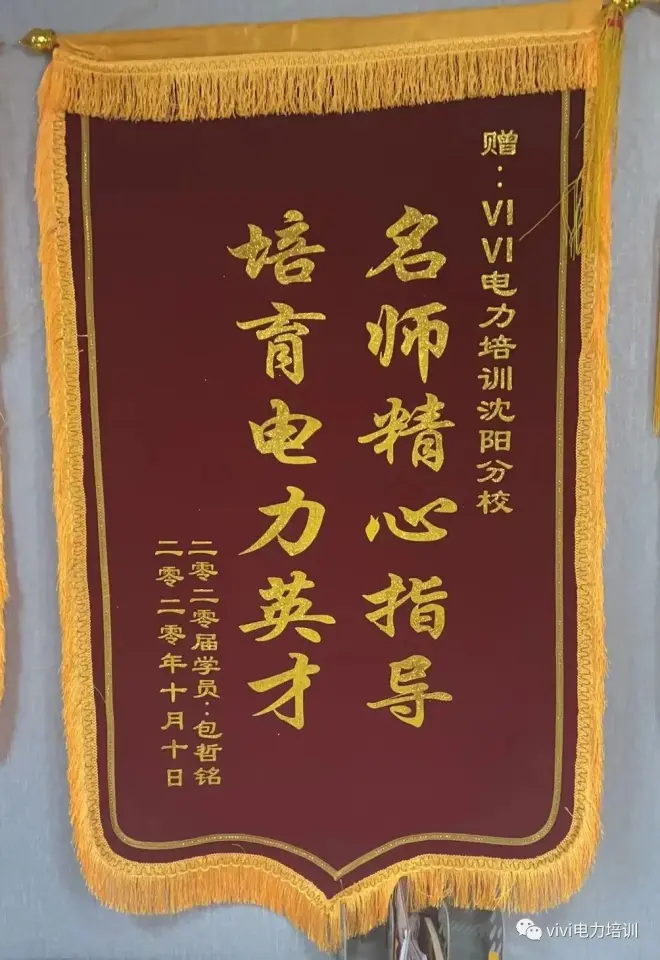 赠：VIVI电力培训沈阳分校
名师精心指导
培育电力英才
二零二零届学员：包哲铭
二零二零年十月十日
vivi电力培训